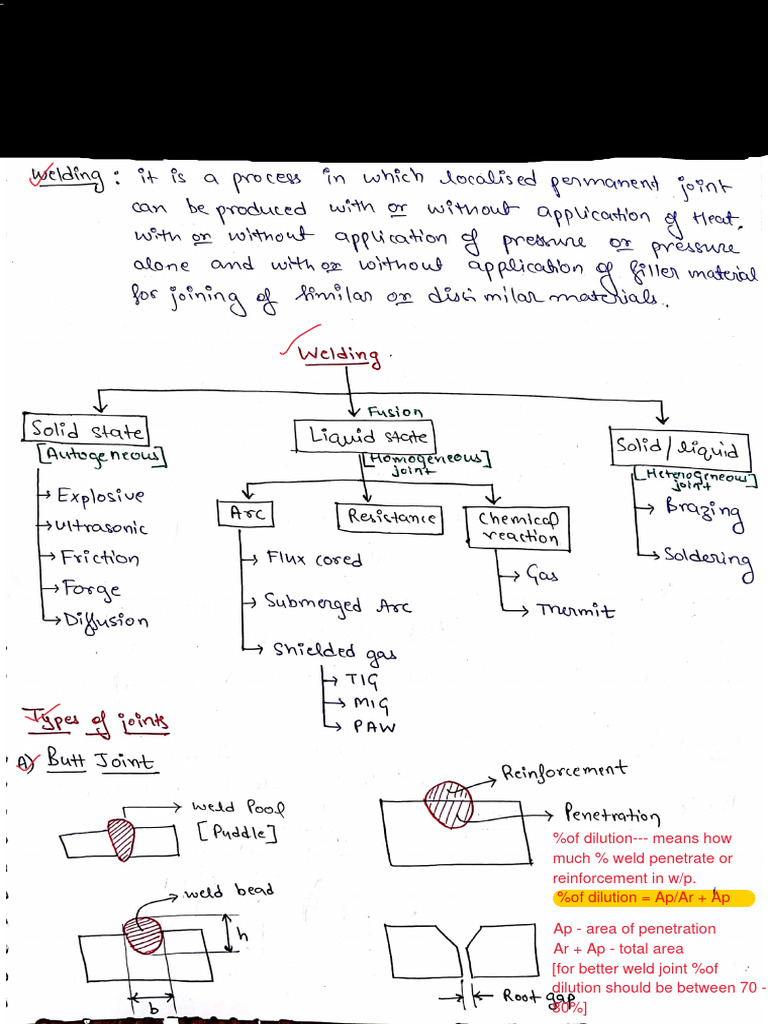 Welding : it is a process in which localised permanent joint
can be produced with or without application of Heat,
with or without application of pressure or pressure
alone and with or without application of filler material
for joining of similar or dissimilar materials.
Welding.
Solid state
[Autogeneous]
Explosive
Ultrasonic
Friction
Forge
Diffusion
Fusion
Liquid state
[Homogeneous]
joint
Arc
Flux cored
Submerged Arc
Shielded gas
TIG
MIG
PAW
Resistance
Chemical
reaction
Gas
Thermit
Solid/liquid
[Heterogeneous]
joint
Brazing
Soldering
Types of joints
A) Butt Joint
Weld Pool
[Puddle]
Reinforcement
Penetration
%of dilution--- means how
much % weld penetrate or
reinforcement in w/p.
%of dilution = Ap/Ar + Ap
Ap - area of penetration
Ar + Ap - total area
[for better weld joint %of
dilution should be between 70 -
80%]
weld bead
h
b
Root gap